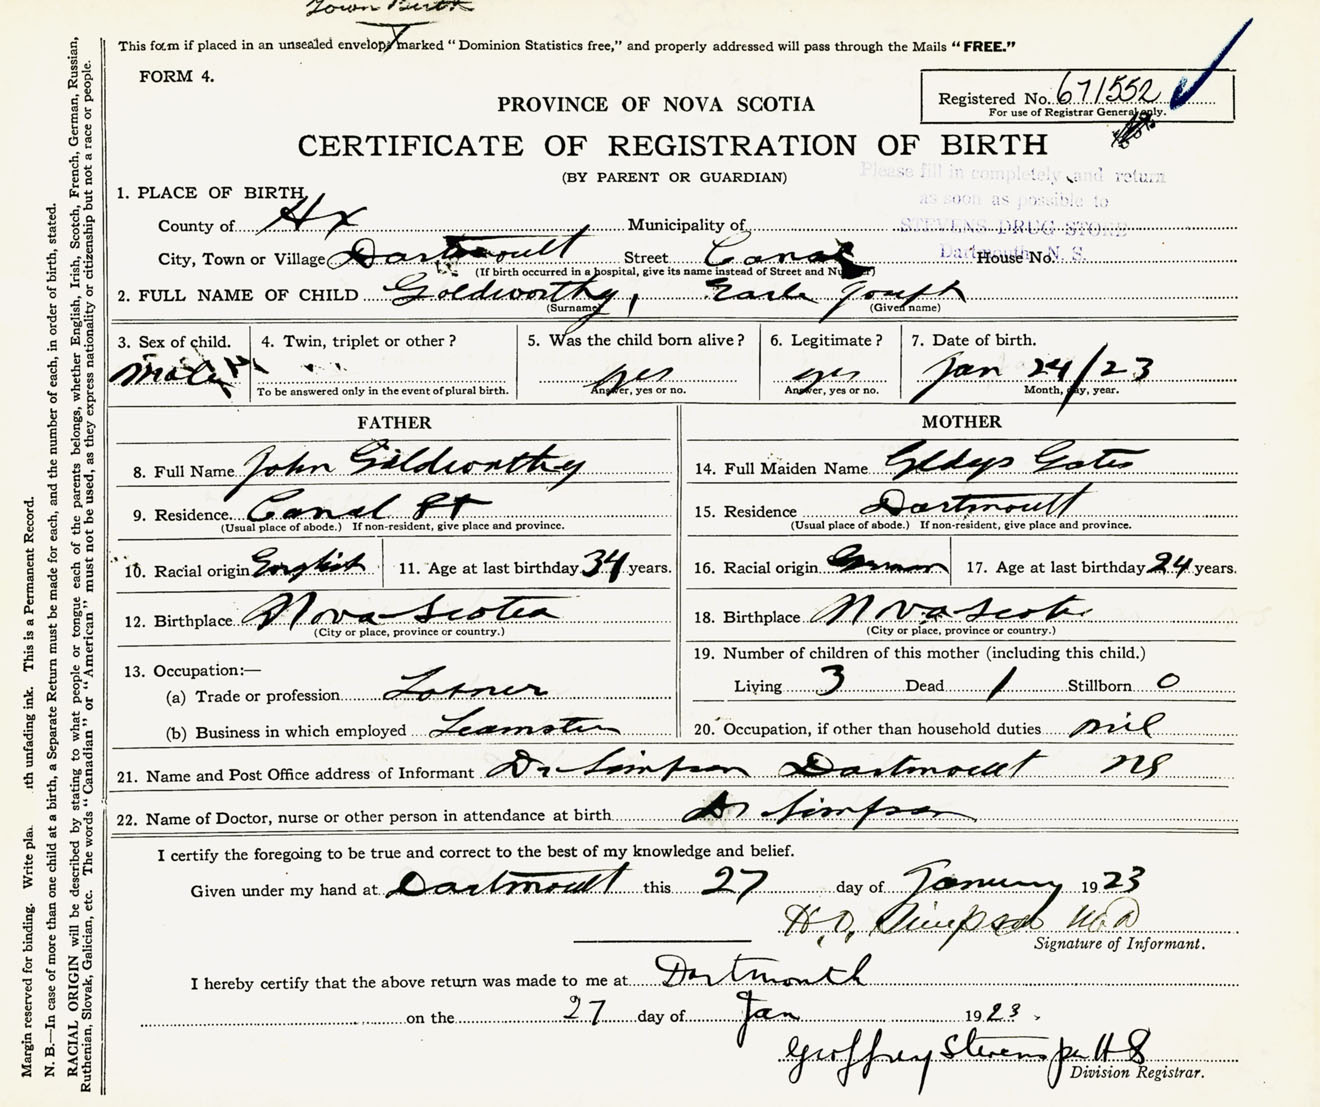 Town Birth
This form if placed in an unsealed envelope marked "Dominion Statistics free," and properly addressed will pass through the Mails "FREE."
FORM 4.
Registered No. 671552
For use of Registrar General only.
PROVINCE OF NOVA SCOTIA
CERTIFICATE OF REGISTRATION OF BIRTH
(BY PARENT OR GUARDIAN)
Please fill in completely and return
as soon as possible to
STEVENS DRUG STORE
Dartmouth, N. S.
1. PLACE OF BIRTH
County of Hx Municipality of
City, Town or Village Dartmoutt Street Canal House No.
(If birth occurred in a hospital, give its name instead of Street and Number)
2. FULL NAME OF CHILD Goldworthy, Earle Joseph
(Surname) (Given name)
3. Sex of child. 4. Twin, triplet or other? 5. Was the child born alive? 6. Legitimate? 7. Date of birth.
Male yes yes Jan 24/23
To be answered only in the event of plural birth. Answer, yes or no. Answer, yes or no. Month, day, year.
FATHER
8. Full Name John Goldworthy
9. Residence Canal St
(Usual place of abode.) If non-resident, give place and province.
10. Racial origin English 11. Age at last birthday 34 years.
12. Birthplace Nova Scotia
(City or place, province or country.)
13. Occupation:—
(a) Trade or profession
(b) Business in which employed Teamster
MOTHER
14. Full Maiden Name Gldys Gates
15. Residence Dartmoutt
(Usual place of abode.) If non-resident, give place and province.
16. Racial origin German 17. Age at last birthday 24 years.
18. Birthplace Nova Scotia
(City or place, province or country.)
19. Number of children of this mother (including this child.)
Living 3 Dead 1 Stillborn 0
20. Occupation, if other than household duties nil
21. Name and Post Office address of Informant Dr Simpson Dartmoutt NS
22. Name of Doctor, nurse or other person in attendance at birth Dr Simpson
I certify the foregoing to be true and correct to the best of my knowledge and belief.
Given under my hand at Dartmoutt this 27 day of January 1923
H. O. Simpson M D
Signature of Informant.
I hereby certify that the above return was made to me at Dartmouth
on the 27 day of Jan 1923.
Geoffrey Stevens per HS
Division Registrar.
Margin reserved for binding. Write pla. ith unfading ink. This is a Permanent Record.
N. B.—In case of more than one child at a birth, a Separate Return must be made for each, and the number of each, in order of birth, stated.
RACIAL ORIGIN will be described by stating to what people or tongue each of the parents belongs, whether English, Irish, Scotch, French, German, Russian,
Ruthenian, Slovak, Galician, etc. The words "Canadian" or "American" must not be used, as they express nationality or citizenship but not a race or people.